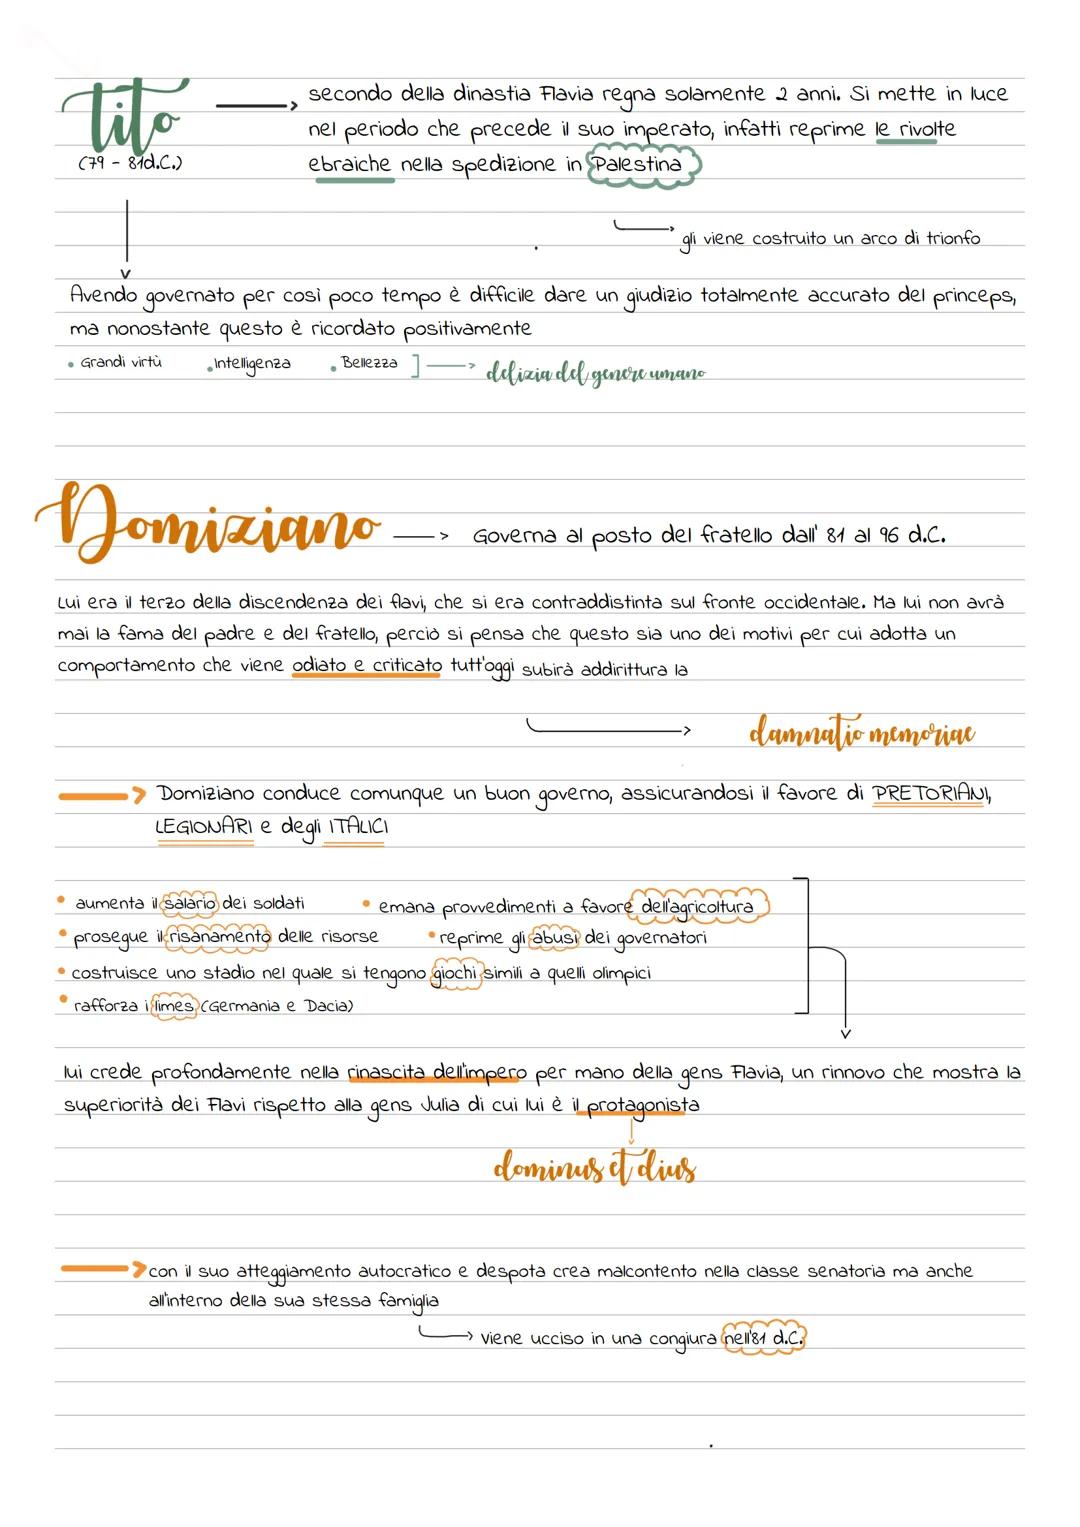 tito
(79 - 81d.C.)
secondo della dinastia Flavia regna solamente 2 anni. Si mette in luce
nel periodo che precede il suo imperato, infatti reprime le rivolte
ebraiche nella spedizione in Palestina
gli viene costruito un arco di trionfo
Avendo governato per così poco tempo è difficile dare un giudizio totalmente accurato del princeps,
ma nonostante questo è ricordato positivamente
• Grandi virtù • Intelligenza • Bellezza ] → delizia del genere umano
Domiziano → Governa al posto del fratello dall' 81 al 96 d.C.
Lui era il terzo della discendenza dei flavi, che si era contraddistinta sul fronte occidentale. Ma lui non avrà
mai la fama del padre e del fratello, perciò si pensa che questo sia uno dei motivi per cui adotta un
comportamento che viene odiato e criticato tutt'oggi subirà addirittura la
damnatio memoriae
Domiziano conduce comunque un buon governo, assicurandosi il favore di PRETORIANI,
LEGIONARI e degli ITALICI
• aumenta il salario dei soldati • emana provvedimenti a favore dell'agricoltura
• prosegue il risanamento delle risorse • reprime gli abusi dei governatori
• costruisce uno stadio nel quale si tengono giochi simili a quelli olimpici
• rafforza i limes (Germania e Dacia)
lui crede profondamente nella rinascita dell'impero per mano della gens Flavia, un rinnovo che mostra la
superiorità dei Flavi rispetto alla gens Julia di cui lui è il protagonista
dominus et dius
con il suo atteggiamento autocratico e despota crea malcontento nella classe senatoria ma anche
all'interno della sua stessa famiglia
viene ucciso in una congiura nell'81 d.C.